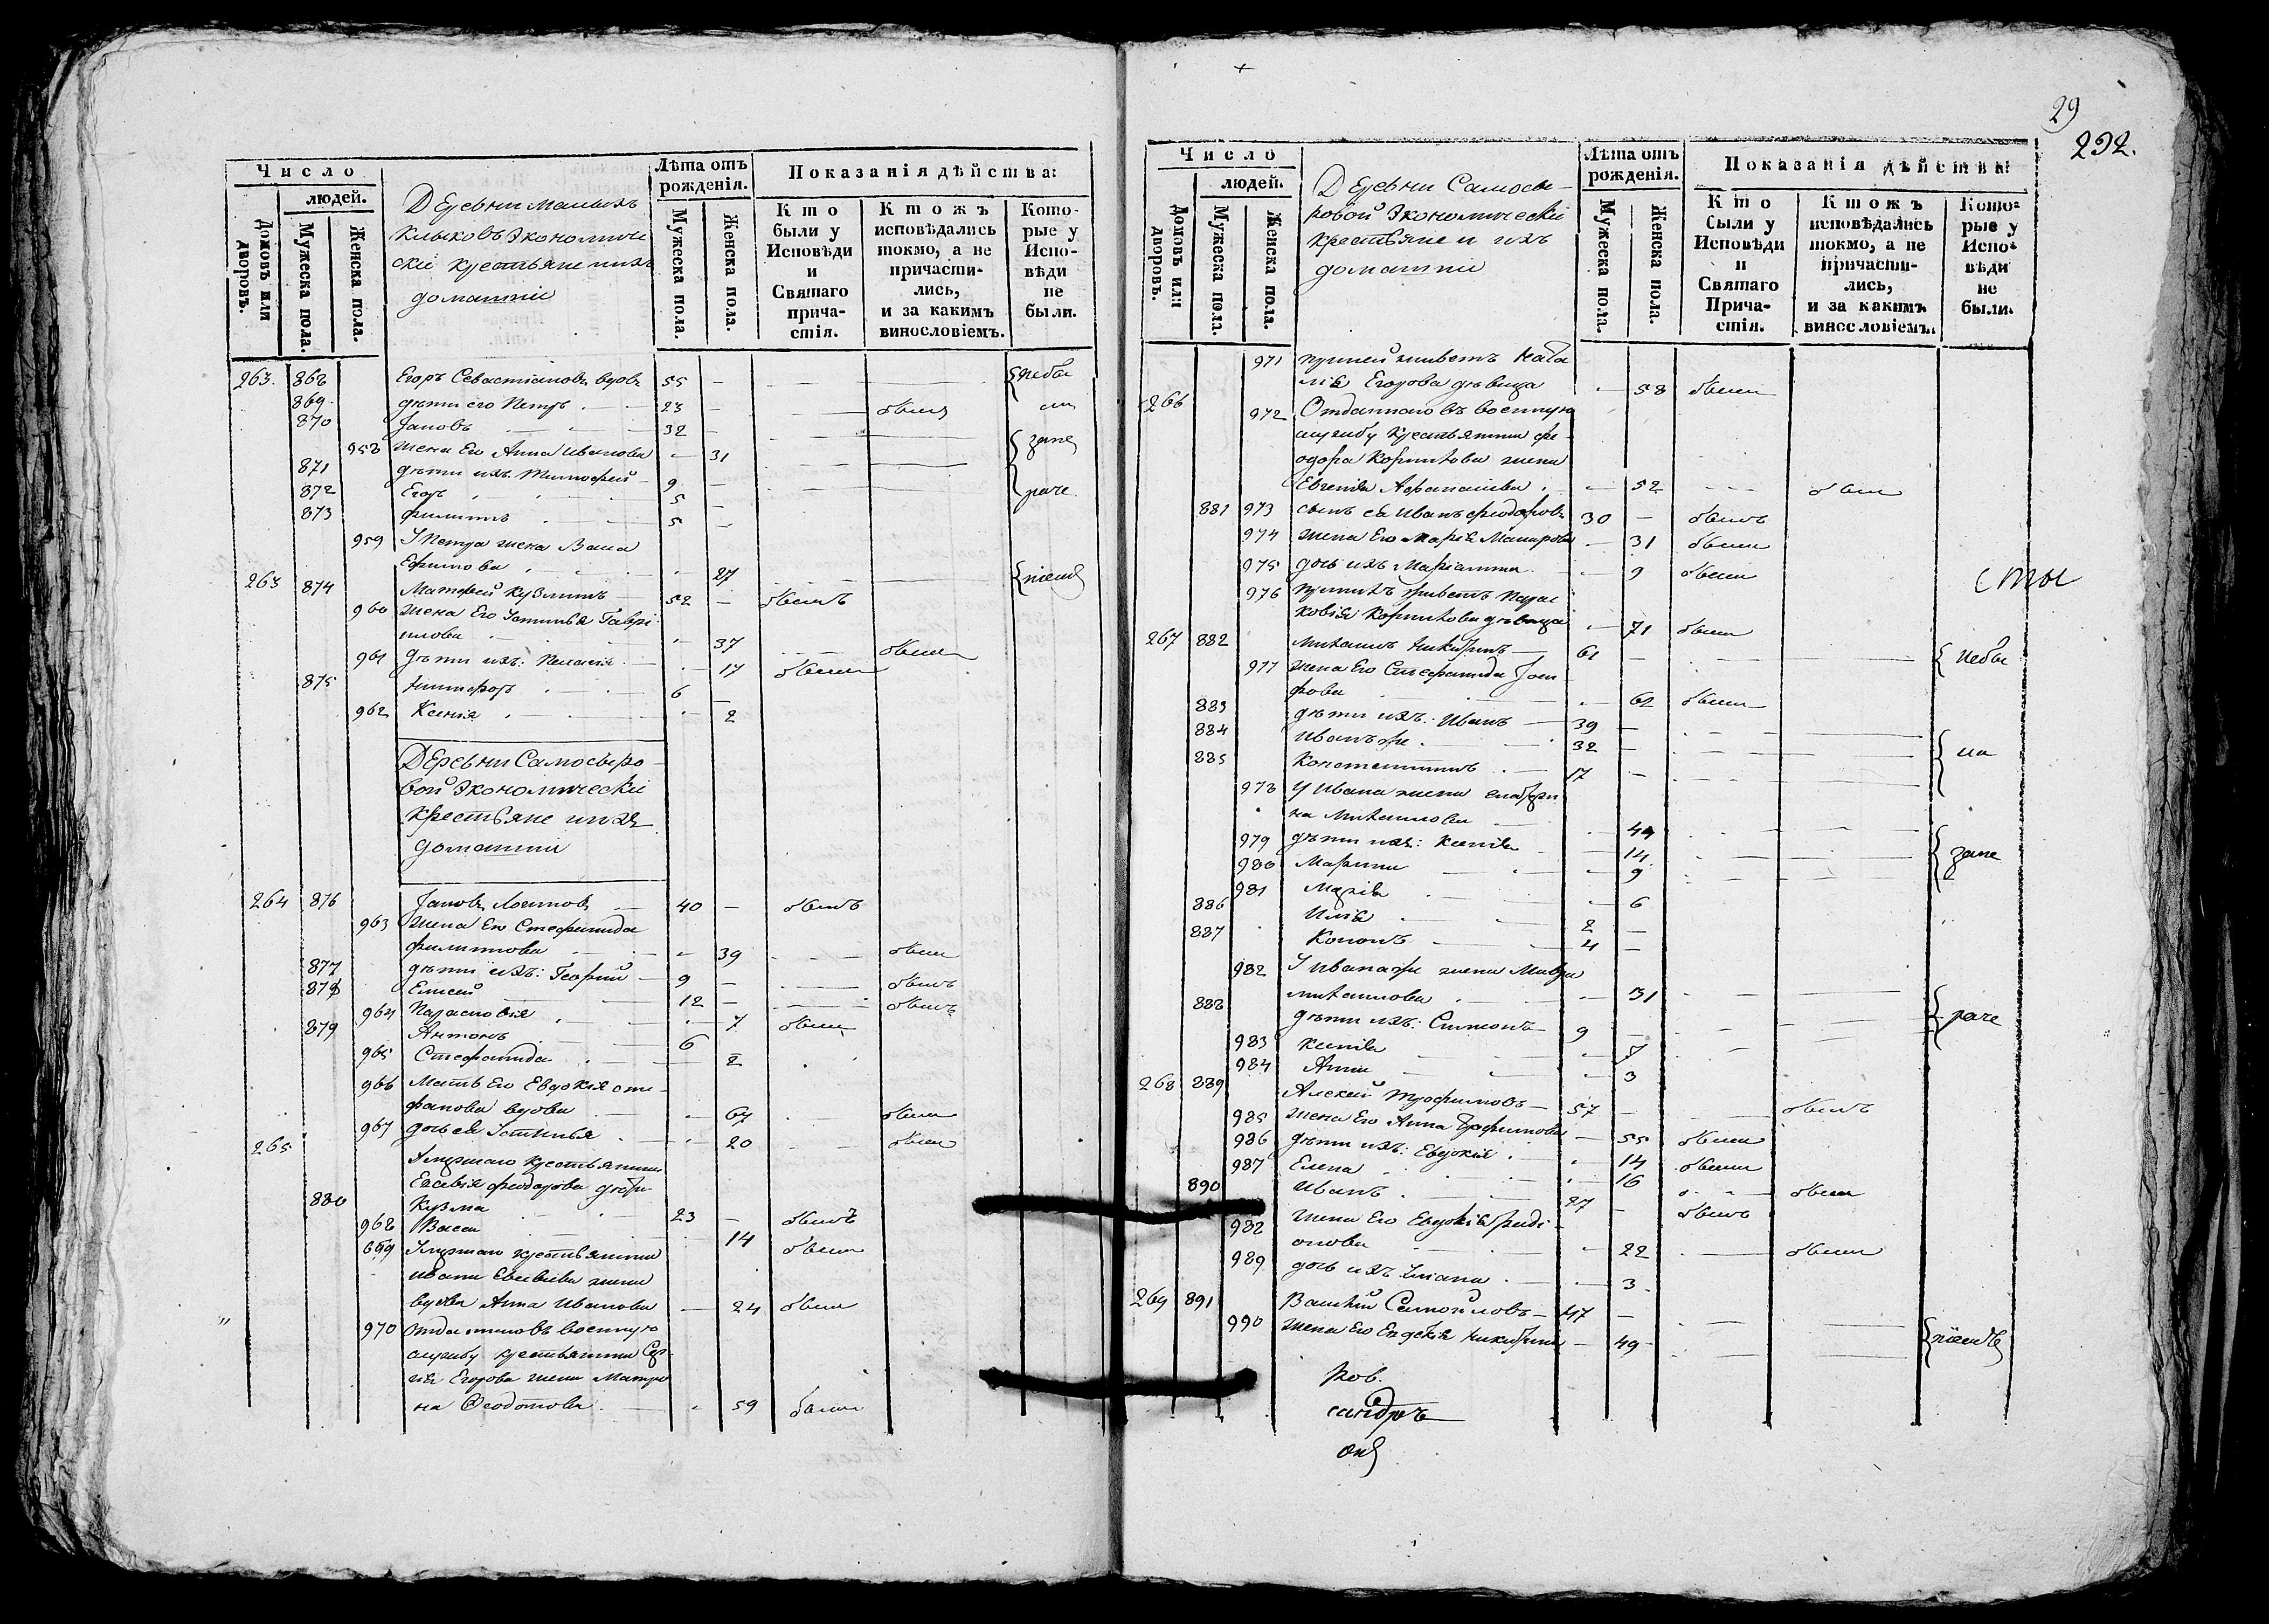 Число
людей.
Домовъ или дворовъ.
Мужеска пола.
Женска пола.
Деревни Малыхъ
Клыковъ Экономиче
скіе крестьяне и ихъ
домашніи
Лѣта отъ рожденія.
Мужеска пола.
Женска пола.
Показанія дѣйства:
Кто были у Исповѣди и Святаго причастія.
Ктожъ исповѣдались токмо, а не причастились, и за какимъ винословіемъ.
Которые у Исповѣди не были.
263. 868 Егоръ Севастіановъ вдовъ 55 — — — небы
869 дѣти его Петръ 23 — — былъ ли
870 Іаковъ 32 —
958 жена Его Анна Иванова — 31 зане
871 дѣти ихъ: Тимофей 9 —
872 Егоръ 5 — раче
873 Филиппъ 5 —
959 У Петра жена Васса
Ефимова 27
263 874 Матфей Кузминъ 52 — былъ
960 жена Его Устинья Гаврі
илова 37 была
961 дѣти ихъ: Пелагія 17 была
875 Никифоръ 6 —
962 Ксенія 2
Деревни Самосыро
вой Экономическіе
крестьяне и ихъ
домашніи
264 876 Іаковъ Логиновъ 40 — былъ
963 жена Его Стефанида
Филиппова 39 была
877 дѣти ихъ: Георгий 9 — былъ
878 Елисей 12 — былъ
964 Парасковія 7 была
879 Антонъ 6
965 Стефанида 2
966 Мать Его Евдокія сте
фанова вдова 67 была
967 дочь ея Устинья 20 была
265 Умершаго крестьянина
Евсевія Феодорова дѣти
880 Кузма 23 — былъ
968 Васса 14 была
969 Умершаго крестьянина
Ивана Евсевіева жена
вдова Анна Иванова — 24 была
970 Отданнаго въ военную
службу крестьянина Сер
гія Егорова жена Матро
на Феодотова 59 была
29
292.
Число
людей.
Домовъ или дворовъ.
Мужеска пола.
Женска пола.
Деревни Самосы-
ровой Экономическіе
крестьяне и ихъ
домашніи
Лѣта отъ рожденія.
Мужеска пола.
Женска пола.
Показанія дѣйства:
Кто были у Исповѣди и Святаго Причастія.
Ктожъ исповѣдались токмо, а не причастились, и за какимъ винословіемъ.
Которые у Исповѣди не были.
971 при ней живетъ Ната
лія Егорова дѣвица 58 была
266 972 Отданнаго въ военную
службу крестьянина Фе
одора Корнилова жена
Евгенія Афанасиева 52 была
881 973 сынъ ея Иванъ Феодоровъ 30 — былъ
974 жена Его Марія Макарова 31 была
975 дочь ихъ Маріанна 9 была
976 при нихъ живетъ Парас
ковія Корнилова дѣвица 71 была
сты
267 882 Михаилъ Никитинъ 61 — небы
977 жена Его Стефанида Іоси
фова 62 была
883 дѣти ихъ: Иванъ 39 —
884 Иванъ же 32 — ла
885 Константинъ 17 —
978 У Ивана жена екатери
на Михаилова 44
979 дѣти ихъ: Ксенія 14 зане
980 Марина 9
981 Марія 6
886 Илія 2 —
887 Кононъ 4 —
982 У Ивана же жена Мавра
михаилова 31
888 дѣти ихъ: Симеонъ 9 — раче
983 Ксенія 7
984 Анна 3
268 889 Алексей Трофимовъ 57 — былъ
985 жена Его Анна Трофимова 55 была
986 дѣти ихъ: Евдокія 14 была
987 Елена 16 была
890 Иванъ 27 — былъ
988 жена Его Евдокія
22 была
989 дочь ихъ Уліана 3
269 891 Василій Самойловъ 47 —
990 жена Его Евдокія Никитина — 49
ков.
сандръ